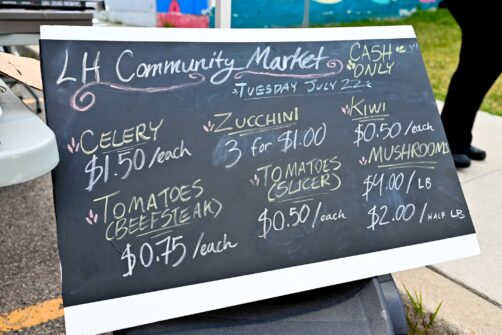 LH Community Market
CASH ONLY
TUESDAY JULY 22
CELERY
$1.50/each
TOMATOES
(BEEFSTEAK)
$0.75/each
ZUCCHINI
3 for $1.00
TOMATOES
(SLICER)
$0.50/each
KIWI
$0.50/each
MUSHROOMS
$4.00/LB
$2.00/HALF LB